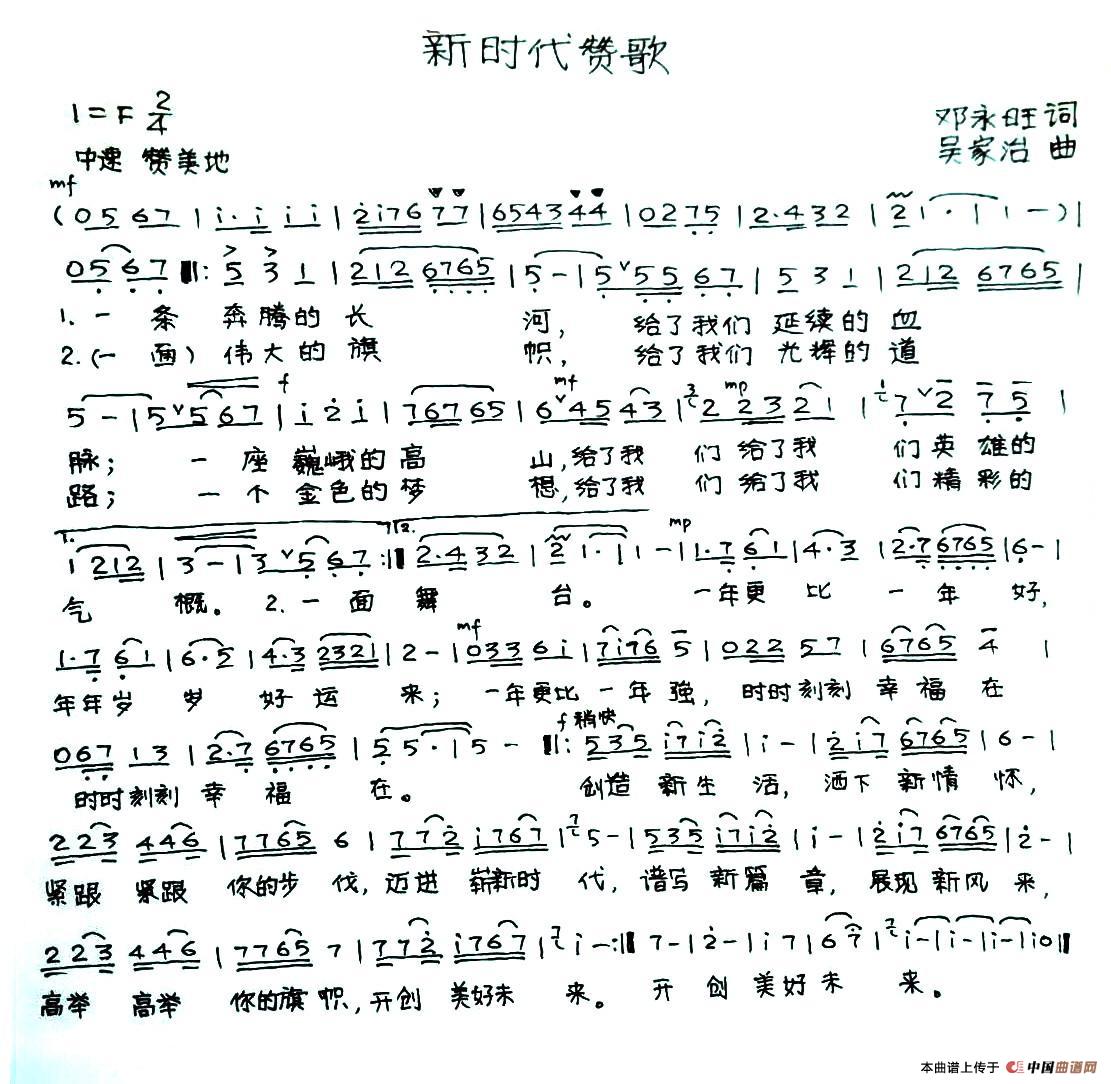 新时代赞歌
1=F 2/4
邓永旺词
中速 赞美地
吴家治 曲
mf
(05 67 | i·i i i | 2i76 77 | 6543 44 | 0275 | 2·432 | 2 1·| 1 - ) |
05 67 ‖: 5 3 1 | 212 6765 | 5 - | 5 ˅55 67 | 5 3 1 | 212 6765 |
1. 一 条 奔腾的 长 河, 给了我们 延续的 血
2.(一 面) 伟大的 旗 帜, 给了我们 光辉的 道
f mf mp
5 - | 5 ˅567 | i 2 i | 76765 | 6 ˅45 43 | 2 23 21 | 7 ˅2 7 5 |
脉; 一 座 巍峨的 高 山,给了我 们 给了我 们英雄的
路; 一 个 金色的 梦 想,给了我 们 给了我 们精彩的
1. 2. mp
1 212 | 3 - | 3 ˅5 67 :‖ 2·432 | 2 1·| 1 - | 1·7 61 | 4·3 | 2·7 6765 | 6 - |
气 概。 2. 一 面 舞 台。 一年更 比 一 年 好,
mf
1·7 61 | 6·5 | 4·3 2321 | 2 - | 033 6i | 7i76 5 | 022 57 | 6765 4 |
年年岁 岁 好 运 来; 一年更比 一 年 强, 时时刻刻 幸福 在
f 稍快
067 13 | 2·7 6765 | 5 5·| 5 - ‖: 535 i7i2 | i - | 2i7 6765 | 6 - |
时时刻刻 幸 福 在。 创造 新生 活, 洒下 新情 怀,
223 446 | 7765 6 | 772 i767 | 5 - | 535 i7i2 | i - | 2i7 6765 | 2 - |
紧跟 紧跟 你的步 伐,迈进 崭新时 代, 谱写 新篇 章, 展现 新风 来,
223 446 | 7765 7 | 772 i767 | i - :‖ 7 - | 2 - | i 7 | 6 7 | i - | i - | i - | i0 ‖
高举 高举 你的旗 帜,开创 美好未 来。 开 创 美好 未 来。
本曲谱上传于 中国曲谱网